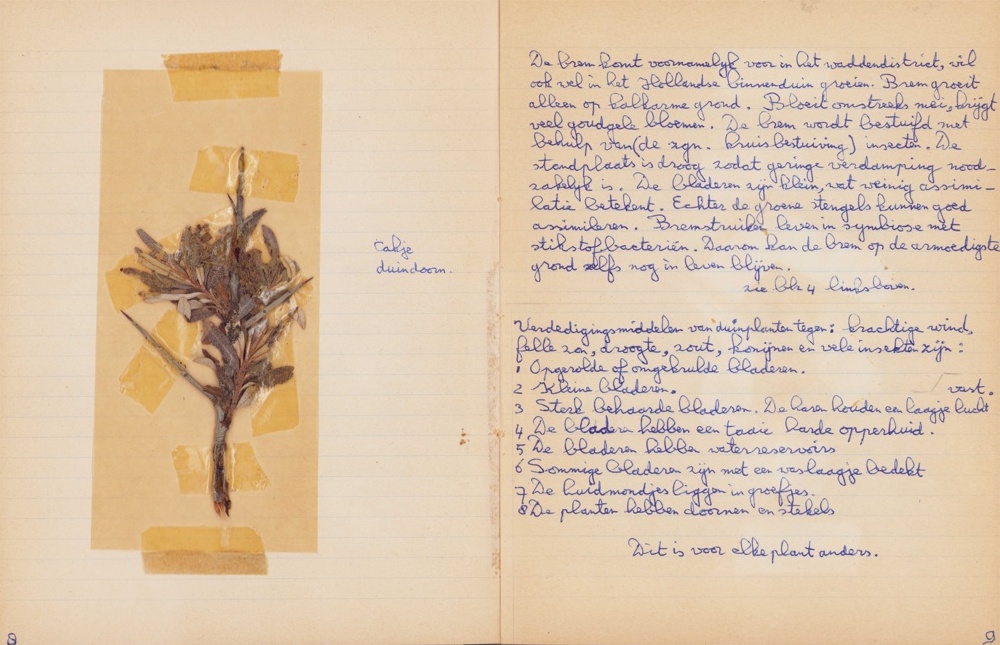 takje
duindoorn.
8
De brem komt voornamelyk voor in het waddendistrict, wil
ook wel in het Hollandse binnenduin groeien. Brem groeit
alleen op kalkarme grond. Bloeit omstreeks mei, krijgt
veel goudgele bloemen. De brem wordt bestuifd met
behulp van (de zgn. kruisbestuiving) insecten. De
standplaats is droog zodat geringe verdamping nood-
zakelyk is. De bladeren zijn klein, wat weinig assimi-
latie betekent. Echter de groene stengels kunnen goed
assimileren. Bremstruiken leven in symbiose met
stikstofbacteriën. Daarom kan de brem op de armoedigste
grond zelfs nog in leven blijven.
zie blz 4 linksboven.
Verdedigingsmiddelen van duinplanten tegen: krachtige wind,
felle zon, droogte, zout, konijnen en vele insekten zijn:
1 Opgerolde of omgekrulde bladeren.
2 Kleine bladeren.
vast.
3 Sterk behaarde bladeren. De haren houden een laagje lucht
4 De bladere hebben een taaie harde opperhuid.
5 De bladeren hebben waterreservoirs
6 Sommige bladeren zijn met een waslaagje bedekt
7 De huidmondjes liggen in groefjes.
8 De planten hebben doornen en stekels
Dit is voor elke plant anders.
9